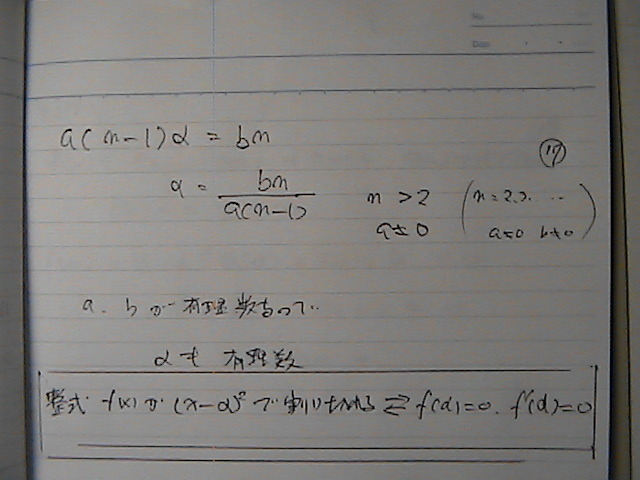 No.
Date
a(n-1)α = bn
⑰
α = bn / a(n-1)   n > 2   (n=2,3, ...
a≠0   a≠0 b≠0)
a. b が 有理数なので..
αも 有理数
整式 f(x)が (x-α)² で 割り切れる ⇄ f(α)=0. f'(α)=0